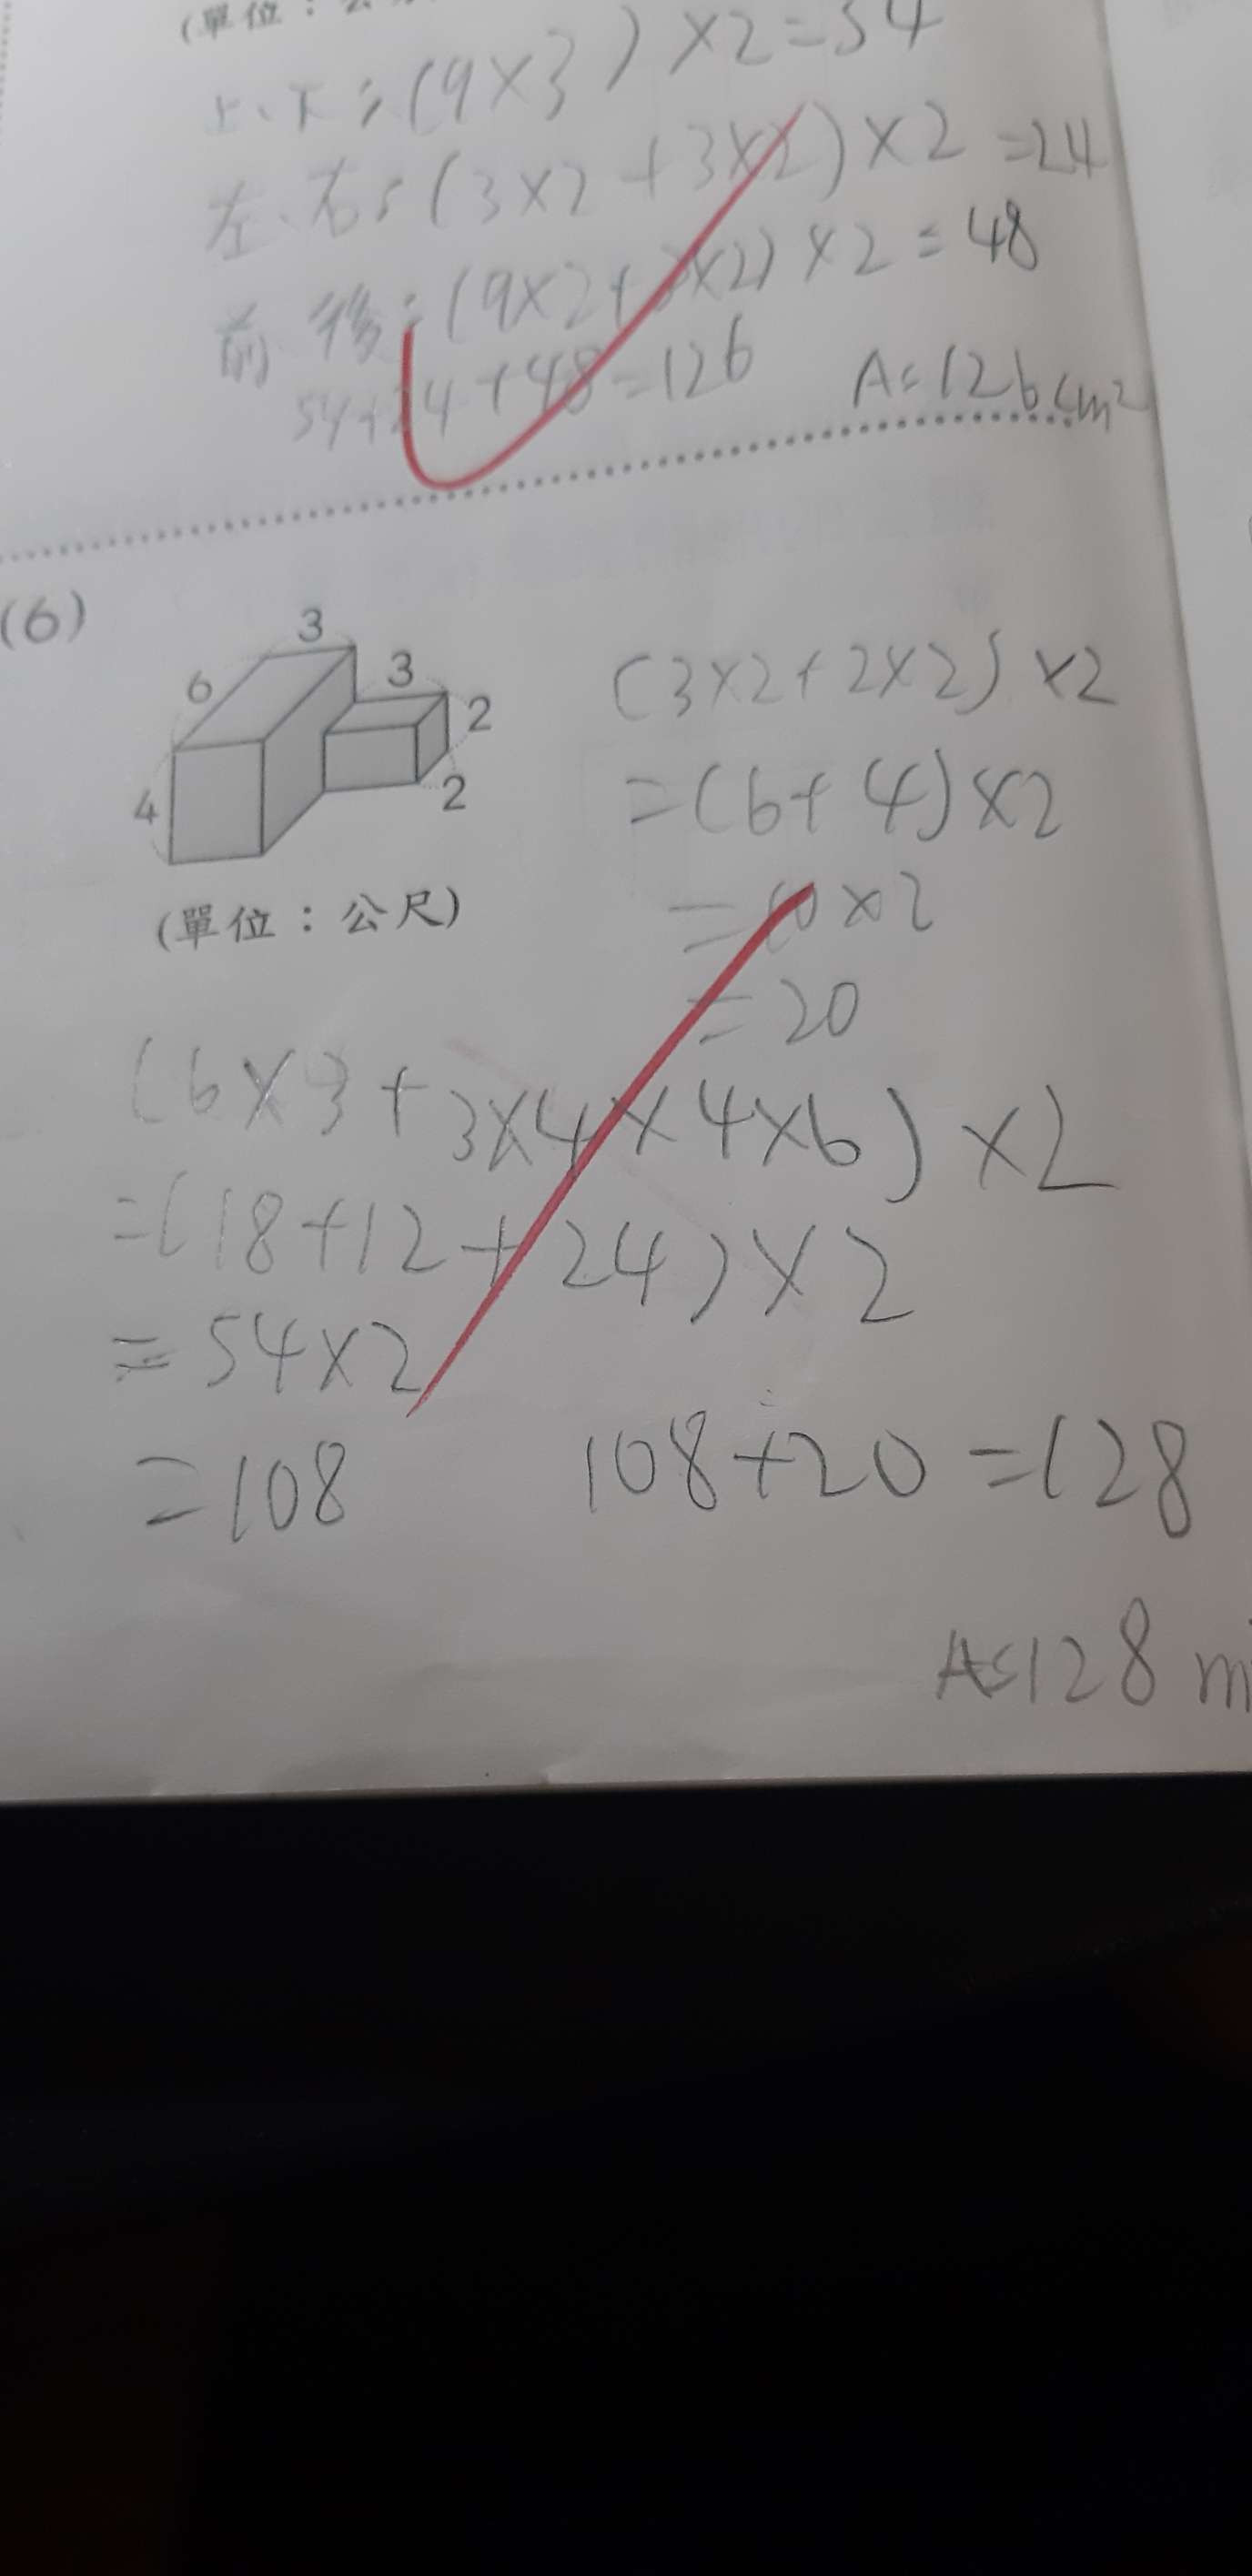 (單位：公
上、下：(9×3)×2=54
左、右：(3×2+3×2)×2=24
前 後：(9×2+3×2)×2=48
54+24+48=126 A：126cm²
(6)
3
6 3
2
4 2
(單位：公尺)
(3×2+2×2)×2
=(6+4)×2
=10×2
=20
(6×3+3×4×4×6)×2
=(18+12+24)×2
=54×2
=108 108+20=128
A：128 m